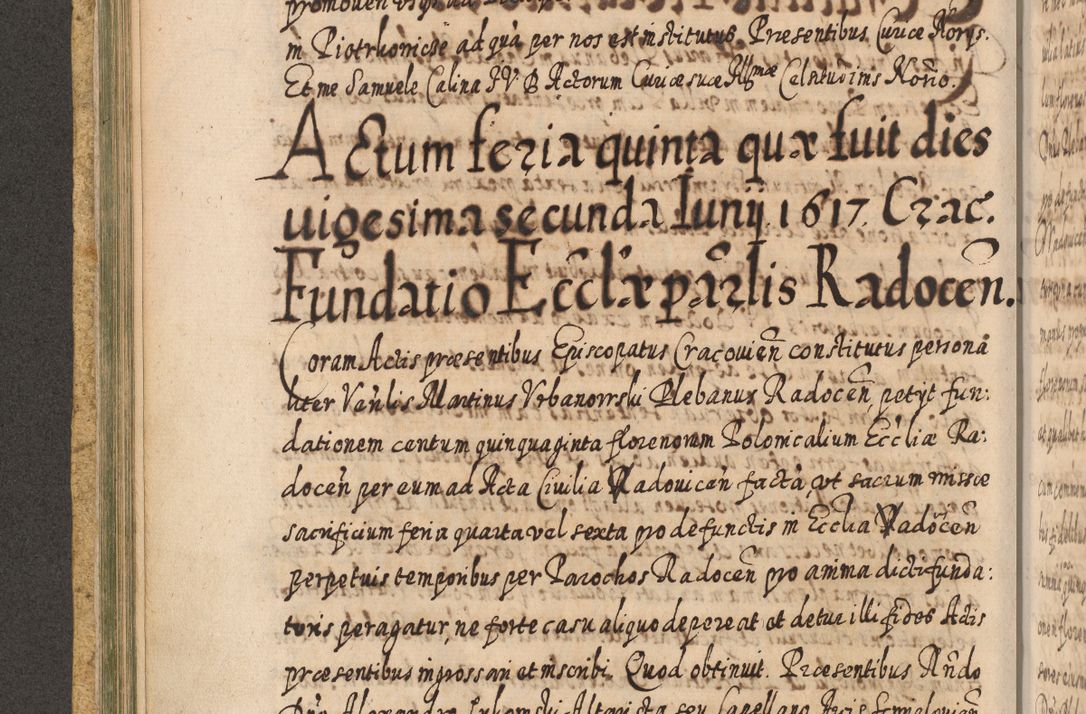 in Piotrkoniciæ ad quã per nos est institutus. Præsentibus Curiæ Norijs.
Et me Samuele Calina J V B Actorum Curiæ suæ Illsmæ Celsitudinis Notrio.
Actum feria quinta quæ fuit dies
uigesima secunda Iunij 1617. Crac.
Fundatio Ecclæ parlis Radocen.
Coram Actis præsentibus Episcopatus Cracouien constitutus persona
liter Venlis Martinus Vrbanowski Plebanus Radocen petijt fun:
dationem centum quinquaginta florenorum Polonicalium Eccliæ Ra:
docen per eum ad Acta Ciuilia Vadouicen factã, vt sacrum missæ
sacrificium feria quarta vel sexta pro defunctis in Ecclia Radocen
perpetuis temporibus per Parochos Radocen pro anima dicti funda:
toris peragatur, ne forte casu aliquo depereat et detur illi fides Actis
præsentibus ingrossari et inscribi. Quod obtinuit. Præsentibus Rndo
Dno Alexandro Altarista seu Capellano